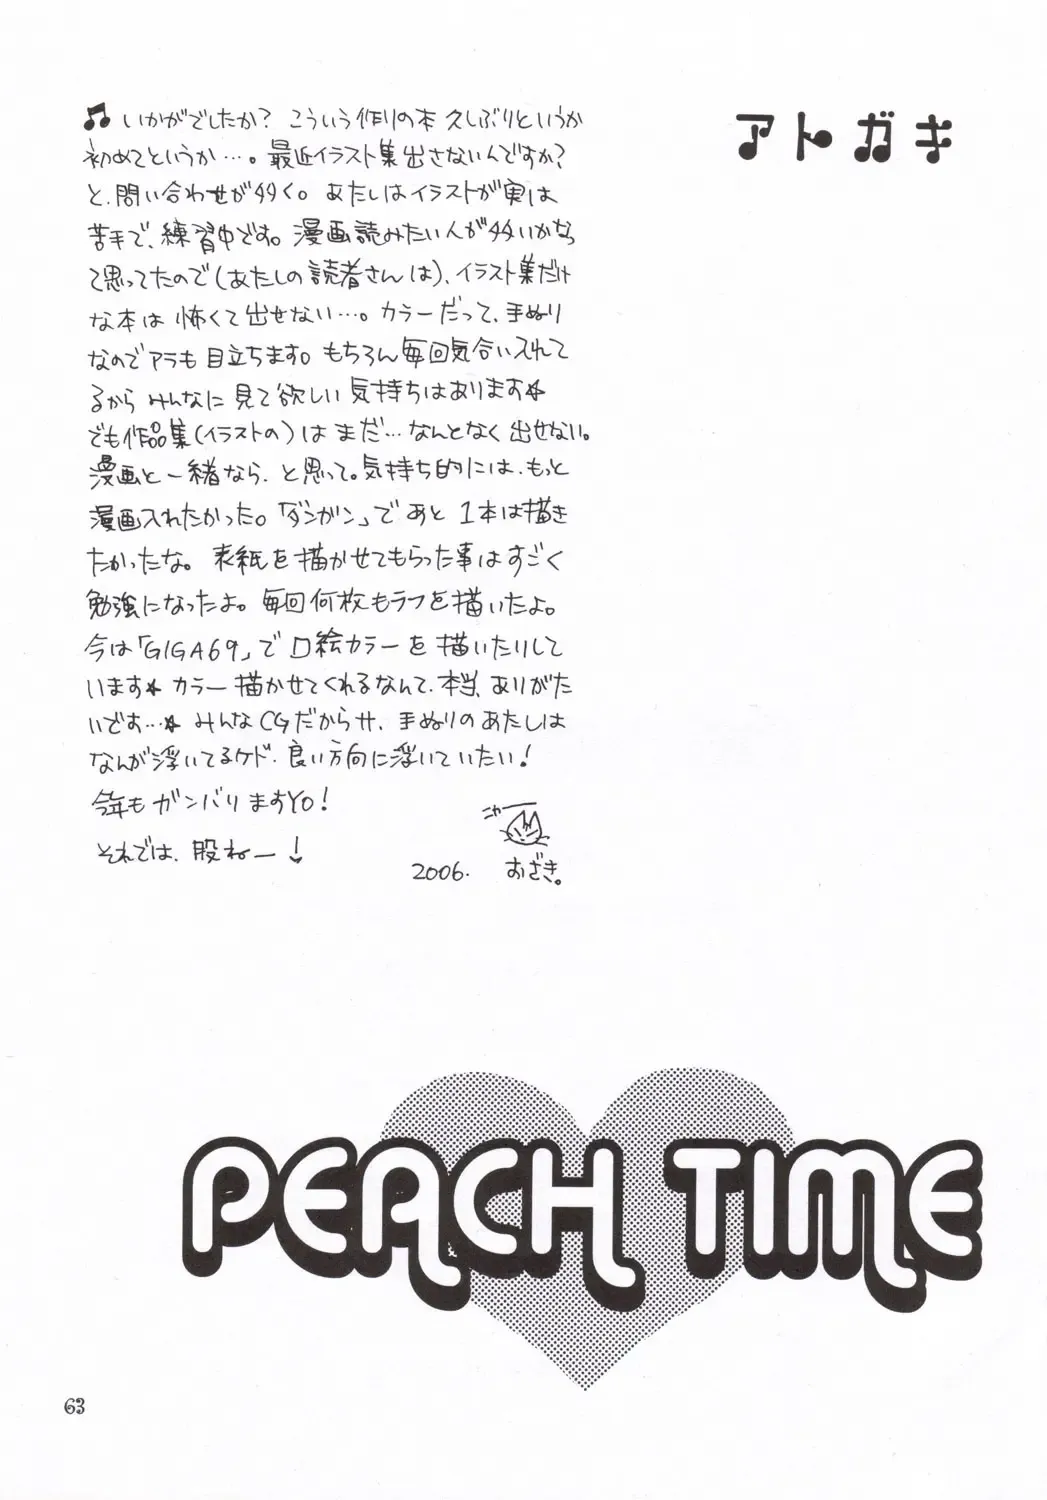 アトガキ
♫ いかがでしたか? こういう作りの本 久しぶりというか
初めてというか…。最近イラスト集出さないんですか?
と、問い合わせが多く。あたしはイラストが実は
苦手で、練習中です。漫画読みたい人が多いかな
て思ってたので(あたしの読者さんは)、イラスト集だけ
な本は 怖くて出せない…。カラーだって、手ぬり
なのでアラも目立ちます。もちろん毎回気合い入れて
るから みんなに見て欲しい気持ちはあります★
でも作品集(イラストの)は まだ…なんとなく出せない。
漫画と一緒なら、と思って。気持ち的には、もっと
漫画入れたかった。「ダンガン」であと 1本は描き
たかったな。表紙を描かせてもらった事はすごく
勉強になったよ。毎回何枚もラフを描いたよ。
今は「GIGA69」で口絵カラーを描いたりして
います★ カラー描かせてくれるなんて、本当、ありがた
いです…★ みんなCGだからサ、手ぬりのあたしは
なんが浮いてるケド、良い方向に浮いていたい!
今年もガンバりますYO!
それでは、股ねー!
ニャー
2006. おざき。
PEACH TIME
63